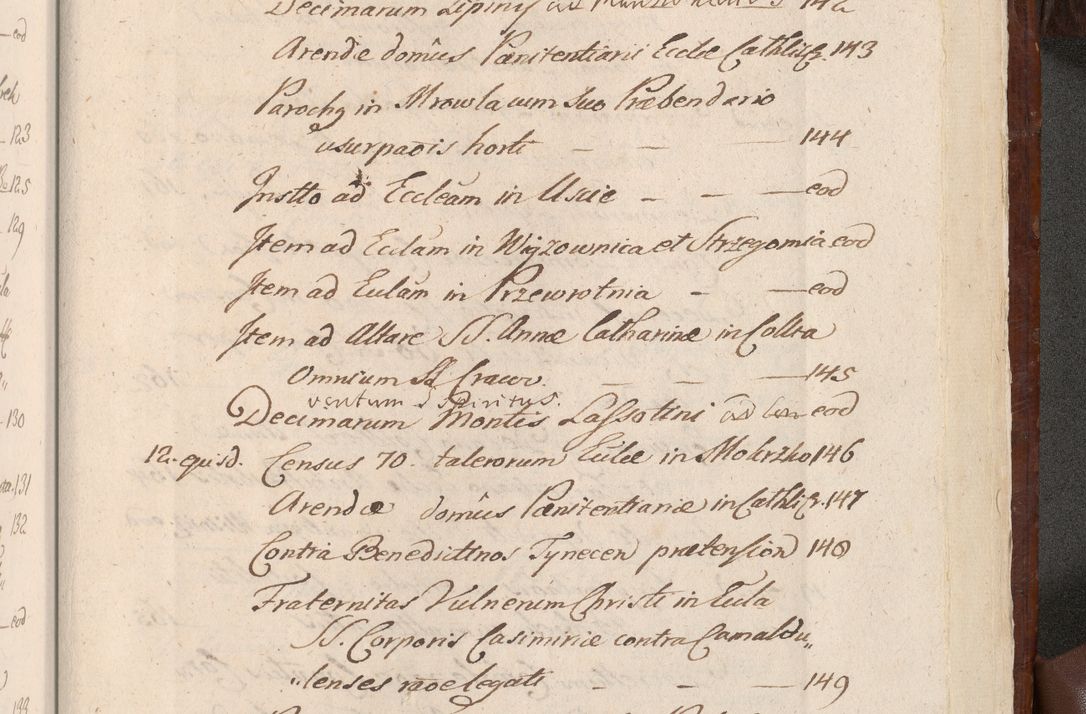 Decimarum Lipiny ad 142
Arendæ domûs Pænitentiarii Ecclæ Cathlis Cr. 143
Parochg in Mrowla cum suo Præbendario
usurpaõis horti — — — 144
Instto ad Eccleam in Uscie — — — eod
Item ad Ecclãm in Wiązownica et Strzegomia eod
Item ad Eulãm in Przewrotnia — — eod
Item ad Altare SS. Annæ Catharinæ in Collta
Omnium SS Cracov. — — — 145
ventum S Spiritus.
Decimarum Montis Lassotini ad con eod
12. ejusd. Census 70. talerorum Eulæ in Mokrzko 146
Arendæ domûs Pænitentiariæ in Cathli Cr. 147
Contra Benedictinos Tynecen prætension 148
Fraternitas Vulnerum Christi in Eula
SS. Corporis Casimiriæ contra Camaldu„
„lenses raõe legati — — — 149
eod
123
125
129
130
131
132
eod
133